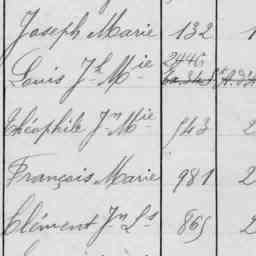 Joseph Marie 132 1
2446
Louis Jh Mie
Théophile Jn Mie 543 2
François Marie 981 2
Clément Jn Ls 865 2